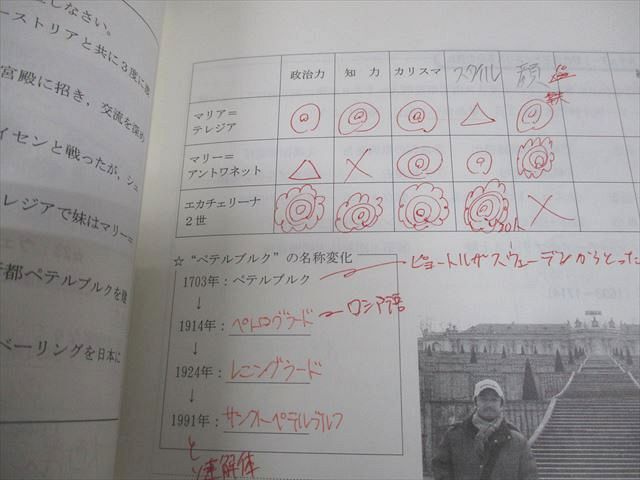 しなさい。
ーストリアと共に３度に
宮殿に招き，交流を深め
イセンと戦ったが，シュ
レジアで妹はマリー＝
都ペテルブルクを
ベーリングを日本に
政治力 知 力 カリスマ スタイル 顔
マリア＝
テレジア
マリー＝
アントワネット
エカチェリーナ
２世
☆“ペテルブルク”の名称変化
1703年：ペテルブルク
ピョートルがスウェーデンからとった
↓
1914年：ペトログラード ロシア語
↓
1924年：レニングラード
↓
1991年：サンクトペテルブルク
ソ連解体